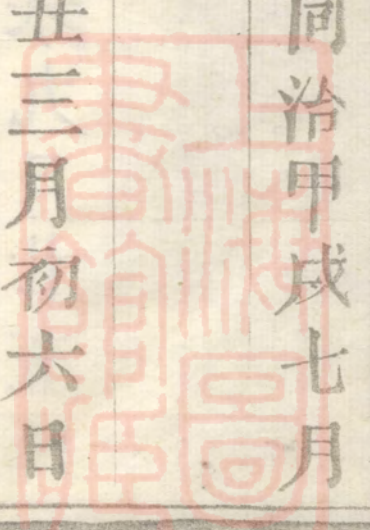 同治甲戌七月
丑三月初六日
上海圖書館藏